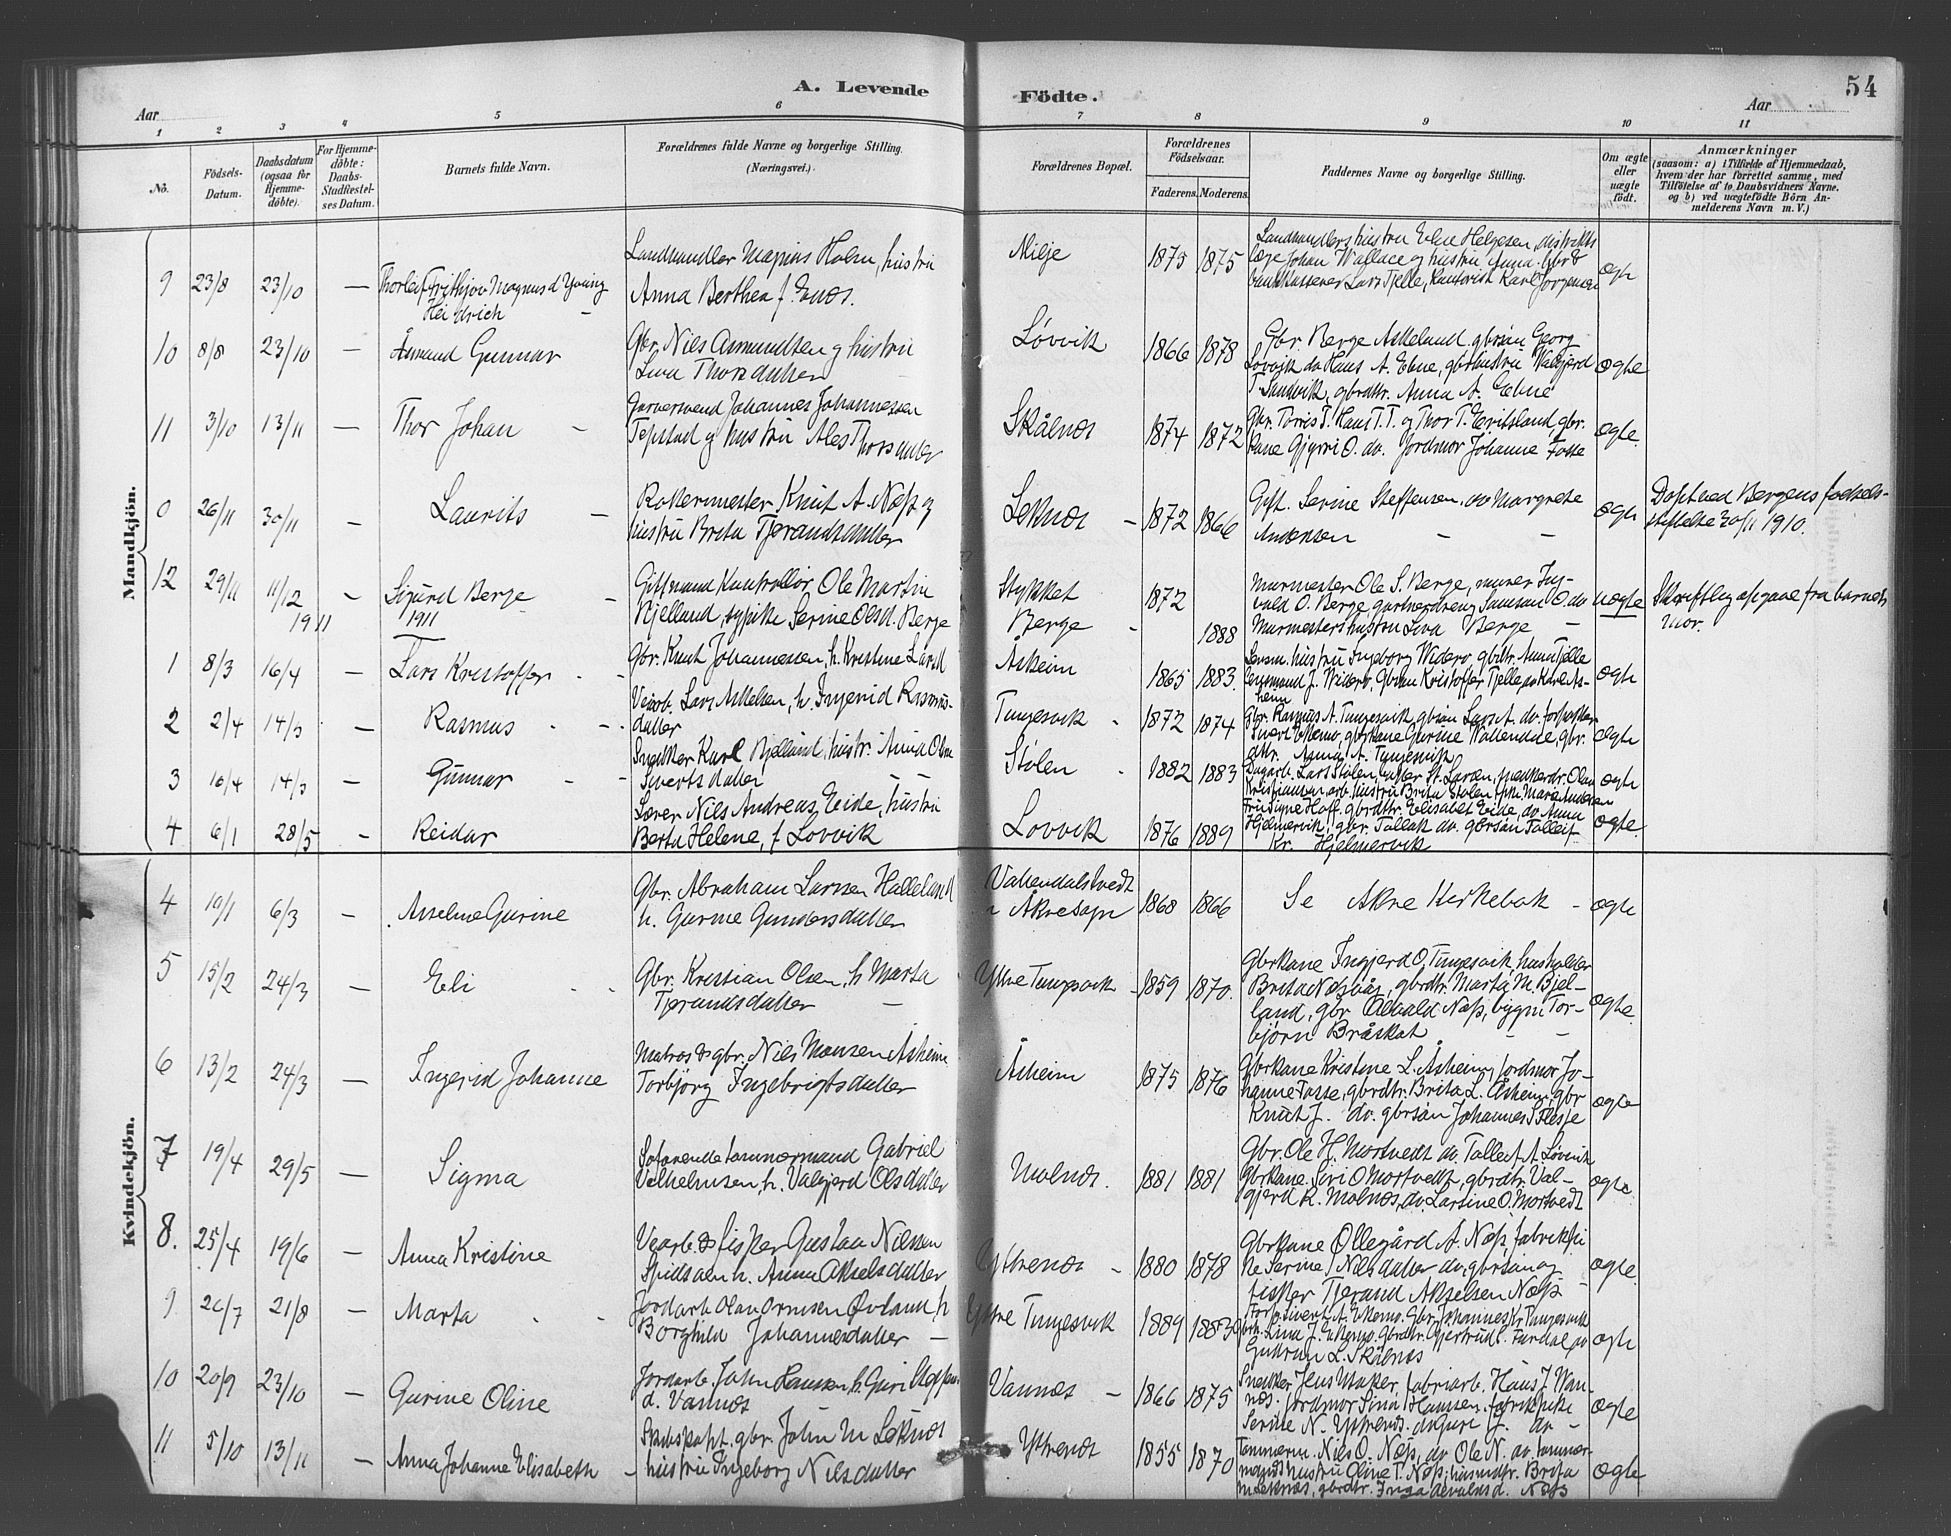 54
A. Levende Födte.
Aar
Aar
1 2 3 4 5 6 7 8 9 10 11
No.
Födsels-Datum.
Daabsdatum (ogsaa for Hjemme-döbte).
For Hjemme-döbte: Daabs-Stadfæstel-ses Datum.
Barnets fulde Navn.
Forældrenes fulde Navne og borgerlige Stilling. (Næringsvei.)
Forældrenes Bopæl.
Forældrenes Födselsaar.
Faderens. Moderens.
Faddernes Navne og borgerlige Stilling.
Om ægte eller uægte födt.
Anmærkninger
(saasom: a) i Tilfælde af Hjemmedaab,
hvem der har forrettet samme, med
Tilföielse af to Daabsvidners Navne,
og b) ved uægtefödte Börn An-
melderens Navn m. V.)
Mandkjön.
9 23/8 23/10 — Thorleif Frithjov Magnus d'Young
Heidrich
Landhandler Magnus Holm, hustru
Anna Berthea f. Enes.
Milje 1875 1875
Landhandlers hustru Elne Helgesen, distrikts
læge Johan Wallace og hustru Anna. Gbr &
bankkasserer Lars Tjelle, kontorist Karl Jørgensen
ægte
10 8/8 23/10 — Åsmund Gunnar
Gbr. Nils Asmundsen og hustru
Lina Thorsdatter
Løvvik 1866 1878
Gbr. Berge Askeland gbrsøn Georg
Løvvik do Hans A. Ebne, gbrhustru Valgjerd
T. Sandvik, gbrdtr. Anna A. Ebne
ægte
11 3/10 13/11 — Thor Johan
Garversvend Johannes Johannessen
Tepstad og hustru Ales Thorsdatter
Skålnes 1874 1872
Gbr. Torris T. Hans T. T. og Thor T. Eritsland, gbr.
kone Gjyrri O. do. Jordmor Johanne Fosse
ægte.
0 26/11 30/11 — Laurits
Rottermester Knut A. Næss og
hustru Brita Tjerandsdatter
Leknes 1872 1866
Gift. Serine Steffensen, do Margrete
Andersen
ægte
Døpt ved Bergens fødsels-
stiftelse 30/11 1910.
12 29/11 11/12 — Sigurd Berge
Gift mand kontrollør Ole Martin
Bjelland, og pike Serine Olsd. Berge
Stykket
Berge 1872 1888
Murmester Ole S. Berge, murer Ing-
vald O. Berge, gartnerdreng Samson O. do
Murmesters hustru Lina Berge
uægte
Skriftlig opgave fra barnets
mor.
1911 1911
1 8/3 16/4 — Lars Kristoffer
Gbr. Knut Johannessen, h. Kristine Larsd
Åsheim 1865 1883.
Lensm. hustru Ingeborg Widerø gbrdtr. Anna Tjelle
Lensmand J. Widerø. Gbrsøn Kristoffer Tjelle do Karl Ås-
heim
ægte
2 2/4 14/5 — Rasmus
Veiarb. Lars Askelsen, h. Ingerid Rasmus-
datter
Tungesvik 1872 1874
Gbr. Rasmus A. Tungesvik, gbrsøn Lars A. do. forpakter
Sivert Ekemo, gbrkone Gurine Vallendal, gbr.
dtr. Anna A. Tungesvik
ægte
3 16/4 14/5 — Gunnar
Snedker Karl Bjelland, hustr. Anna Olina
Sivertsdatter
Stølen 1882 1883
ægte
4 6/1 28/5 — Reidar
Lærer Nils Andreas Eide, hustru
Berta Helene, f. Løvvik
Løvvik 1876 1889
Fru Signe Hoff. gbrdtr. Elisabet Eide, do Anna
Hjelmervik, gbr. Tallak do. gbrsøn Tolleif
Kr. Hjelmervik
ægte.
Kvindekjön.
4 10/1 6/3 — Anselme Gurine
Gbr. Abraham Larsen Halleland
h. Gurine Gundersdatter
Vallendalstvedt
i Åkresogn 1868 1866
Se Åkre Kirkebok — ægte
5 15/2 24/3 — Eli
Gbr. Kristian Olsen, h. Marta
Tjerandsdatter
Ytre Tungesvik 1859 1870.
Gbrkone Ingjerd O. Tungesvik, husholder
Brita Næsvåg, gbrdtr. Marta M. Bjel-
land, gbr. Odvald Næss, bygm. Tor-
bjørn Bråskat
ægte.
6 13/2 24/3 — Ingerid Johanne
Matros & gbr. Nils Monsen Åsheim
Torbjørg Ingebrigtsdatter
Åsheim 1875 1876
Gbrkone Kristine L. Åsheim, jordmor Jo-
hanne Fosse, gbrdtr. Brita L. Åsheim, gbr
Knut J. do. gbrsøn Johannes Flesje
ægte
7 19/4 29/5 — Sigma
Sofarende tømmermand Gabriel
Vilhelmsen, h. Valgjerd Olsdatter
Molnes. 1881 1881
Gbr. Ole H. Mortvedt do. Tolleif A. Løvvik
Gbrkone Siri O Mortvedt, gbrdtr. Val-
gjerd K. Molnes, do. Larsine O. Mortvedt
ægte.
8. 25/4 19/6 — Anna Kristine
Veiarb. & fisker Gustav Nilssen
Spidsøen h. Anna Akselsdatter
Ytrenes 1880 1878
Gbrkone Øllegård A. Næss, fabrikpi
ke Serine Nilsdatter do, gbrsøn og
fisker Tjerand Akselsen Næss
ægte.
9 26/7 21/8 — Marta
Jordarb. Olav Ormsen Øvland h
Borghild Johannesdatter
Ytre Tungesvik 1889 1883
Forp. Sivert A. Ekemo. Gbr. Johannes Kr. Tungesvik
Lina J. Ekemo. Gbrdtr. Gjertrud L. Furdal do
Gudrun L. Skålnes
ægte
10 20/9 23/10 — Gurine Oline
Jordarb. John Hansen h. Guri
d. Vannes
Vannes 1866 1875
Snedker Jens Maker, fabriarb. Hans J. Van-
nes. Jordmor Sina Hansen. fabrikpike
Serine N. Ytrenes. do Guri J. do
ægte
11 5/10 13/11 — Anna Johanne Elisabeth
gbr. John M Leknes
hustru Ingeborg Nilsdatter
Ytrenes 1855 1870
Tømmerm. Nils O. Næss, do Ole N. do. tømmer-
mands hustru Oline T. Næss, husmdtr. Brita
M. Leknes, gbrdtr. Inga Odvaldsd. Næss
ægte